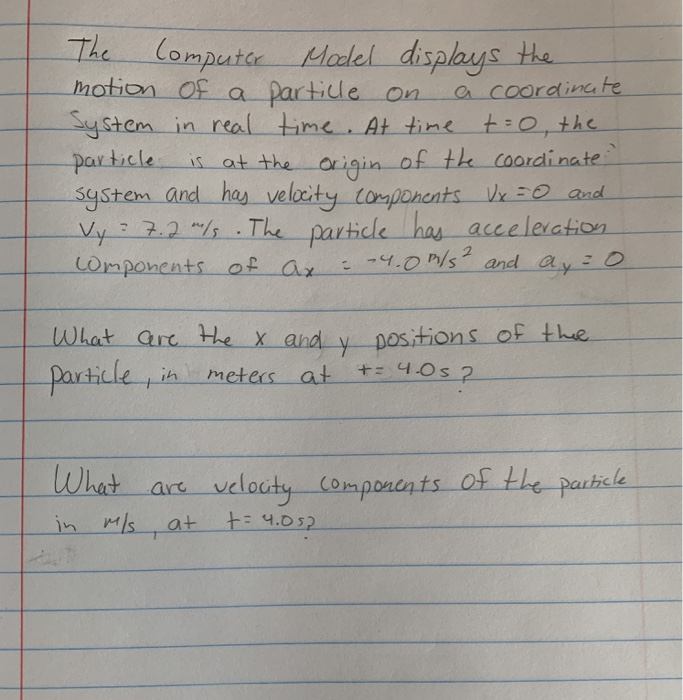 The Computer Model displays the
motion of a particle on a coordinate
System in real time. At time t=0, the
particle is at the origin of the coordinate
system and has velocity components Vx=0 and
Vy = 7.2 m/s. The particle has acceleration
components of ax = -4.0 m/s² and ay = 0
What are the x and y positions of the
particle, in meters at t= 4.0s?
What are velocity components of the particle
in m/s, at t= 4.0s?